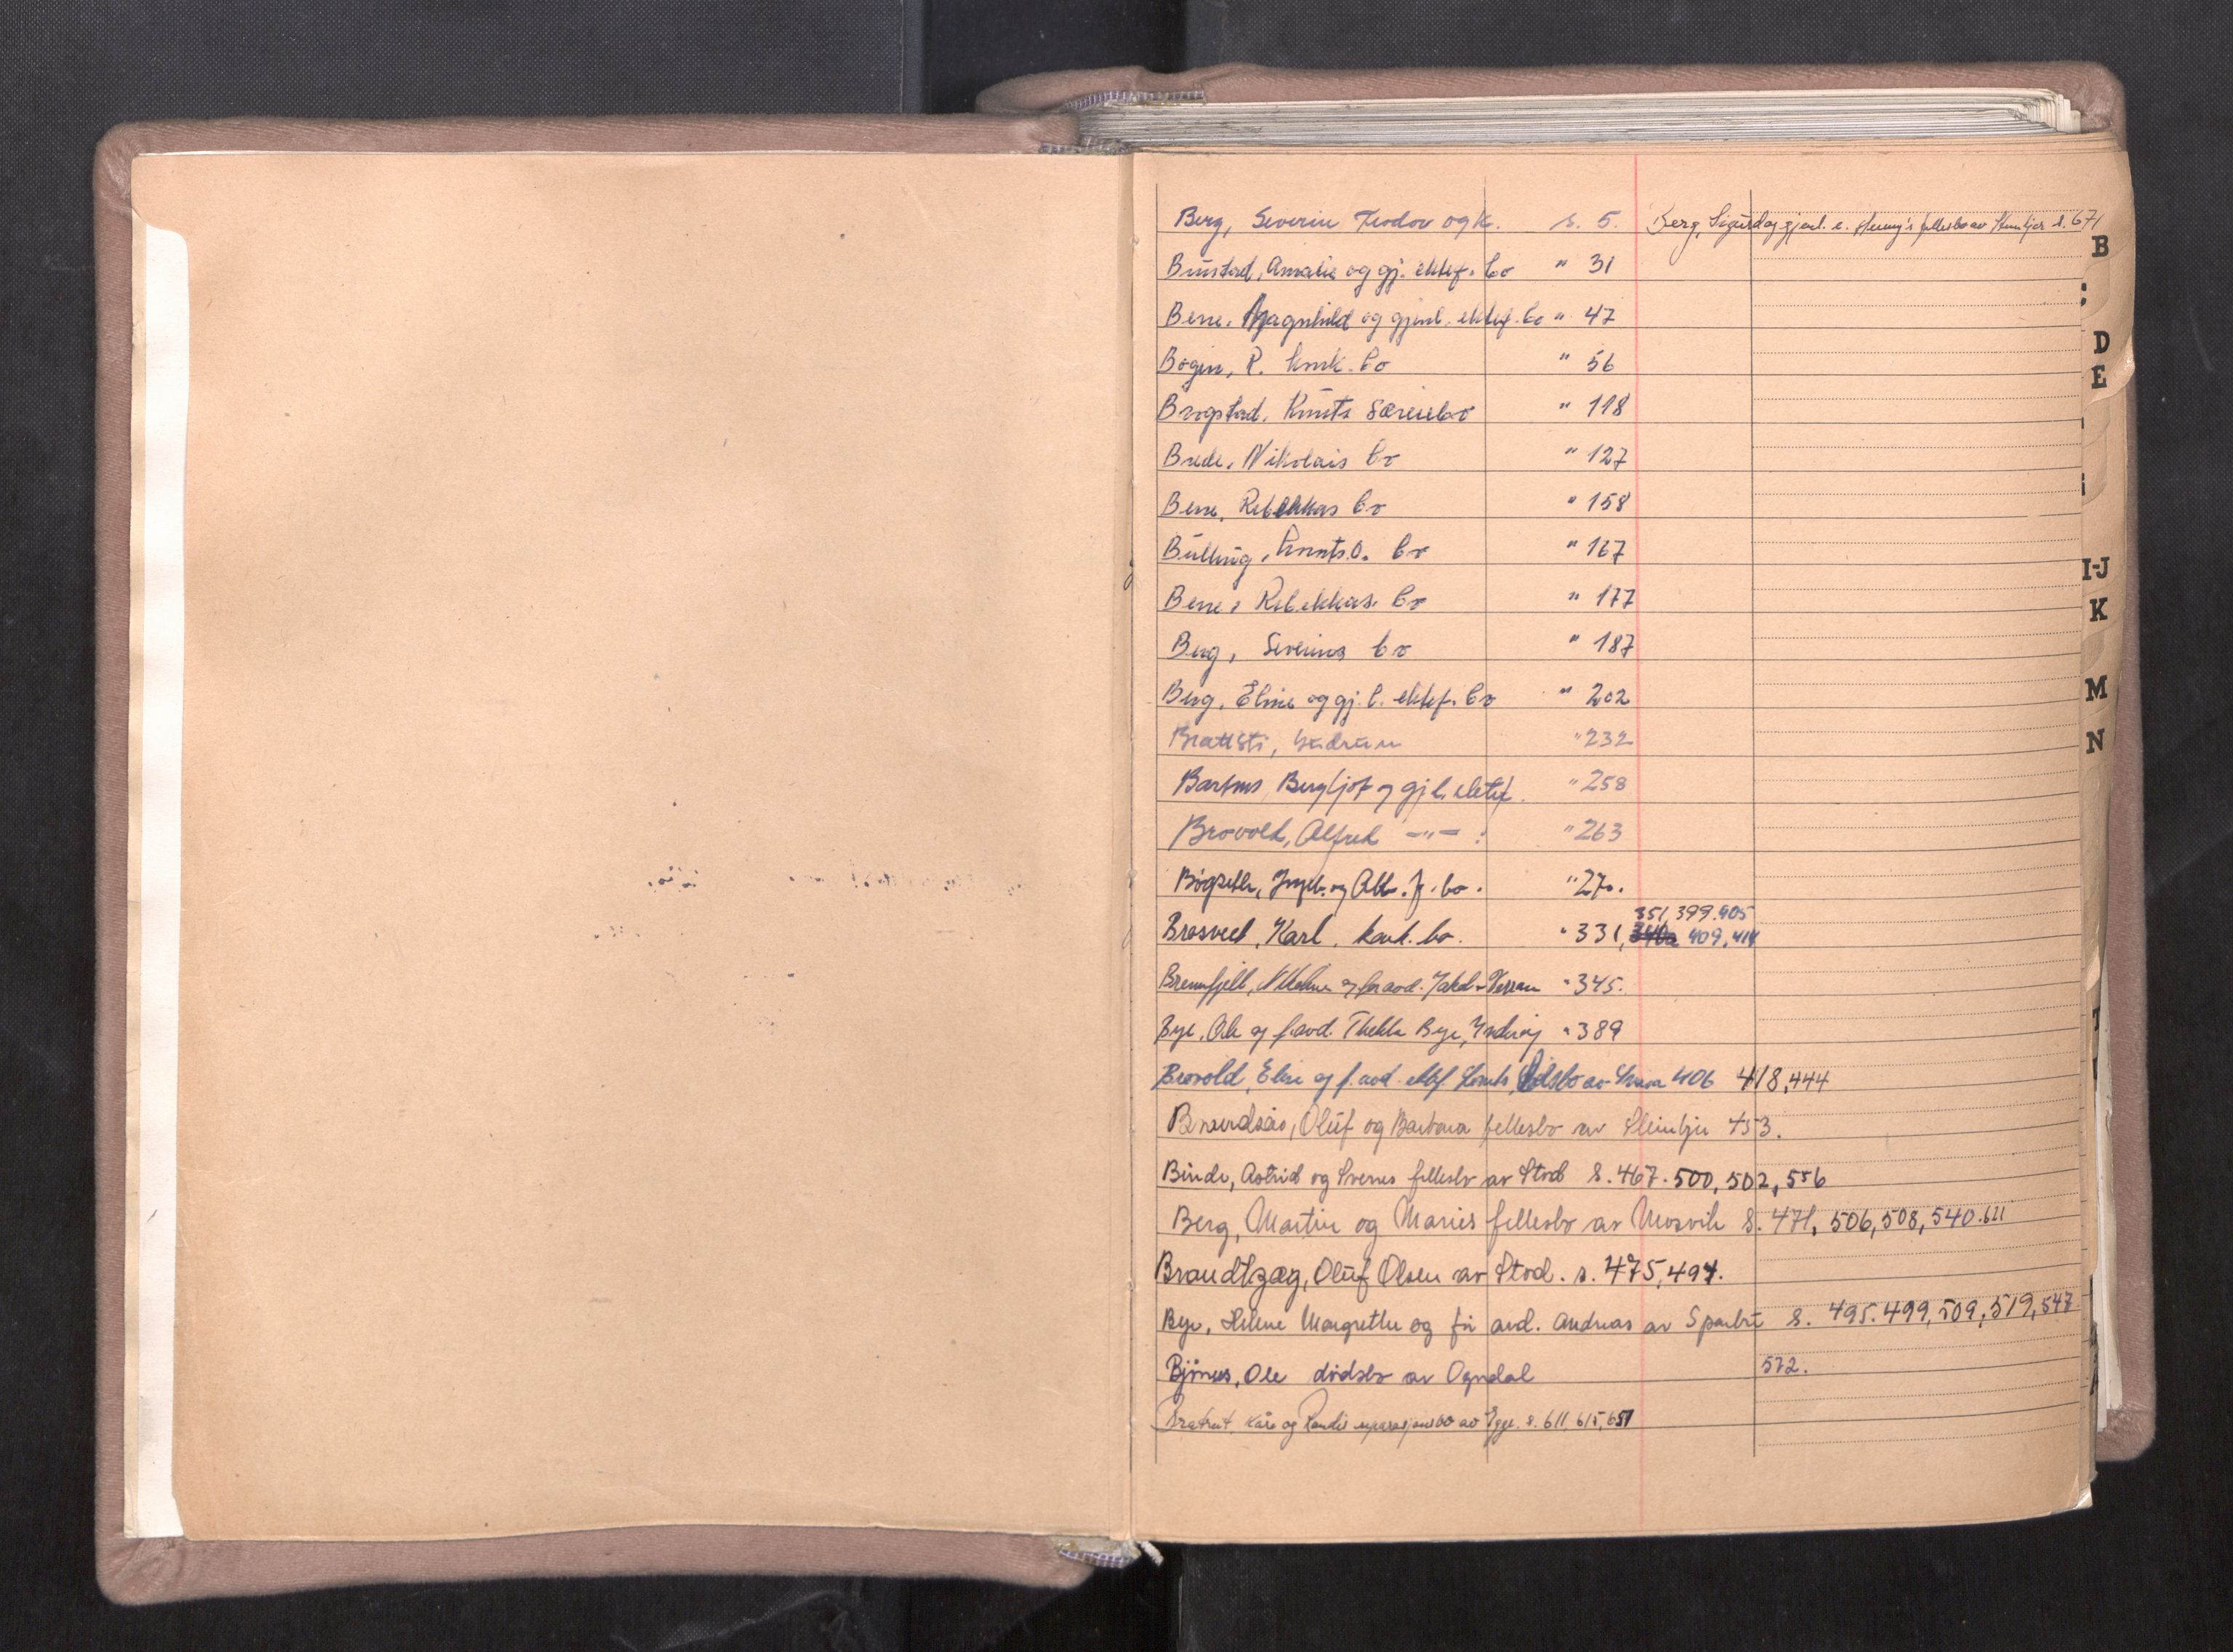 Berg, Severin Teodor og k. s. 5. Berg, Sigurd og gjenl. e. Henny's fellesbo av Steinkjer s. 671
Bustad, Amalie og gj. ektef. bo " 31
Berre, Magnhild og gjenl. ektef. bo " 47
Bogen, R. konk. bo " 56
Brogstad, Knuts særeiebo " 118
Brede, Nikolais bo " 127
Berre, Rebekkas bo " 158
Bulling, Knuts O. bo " 167
Berre, Rebekkas bo " 177
Berg, Severins bo " 187
Berg, Eline og gj. l. ektef. bo " 202
Brattsti, Gudrun " 232
Bartnes, Bergljot og gjl. ektef. " 258
Brovold, Alfred —"— : " 263
Ingeb. og Alb. f. bo. " 270.
351, 399. 405
Karl, konk. bo. " 331, 409, 414
Brennfjell, og før avd. Jakob Verran " 345.
Bye, Ole og f. avd. Thekla Bye, Inderøy " 389
Brovold, Elise og f. avd. ektef. av 406 418, 444
Oluf og Barbara fellesbo av Steinkjer 453.
Binde, Astrid og Sverres fellesbo av Stod s. 467. 500, 502, 556
Berg, Martin og Maries fellesbo av Mosvik s. 471, 506, 508, 540. 611
Brandtzæg, Oluf Olsen av Stod. s. 475, 494.
Bye, Helene Margrethe og før avd. Andreas av Sparbu s. 495. 499, 509, 519, 547
Bjørnes, Ole dødsbo av Ogndal 572.
Kåre og Randis separasjonsbo av Egge. s. 611, 615, 651
B
D
E
I-J
K
M
N